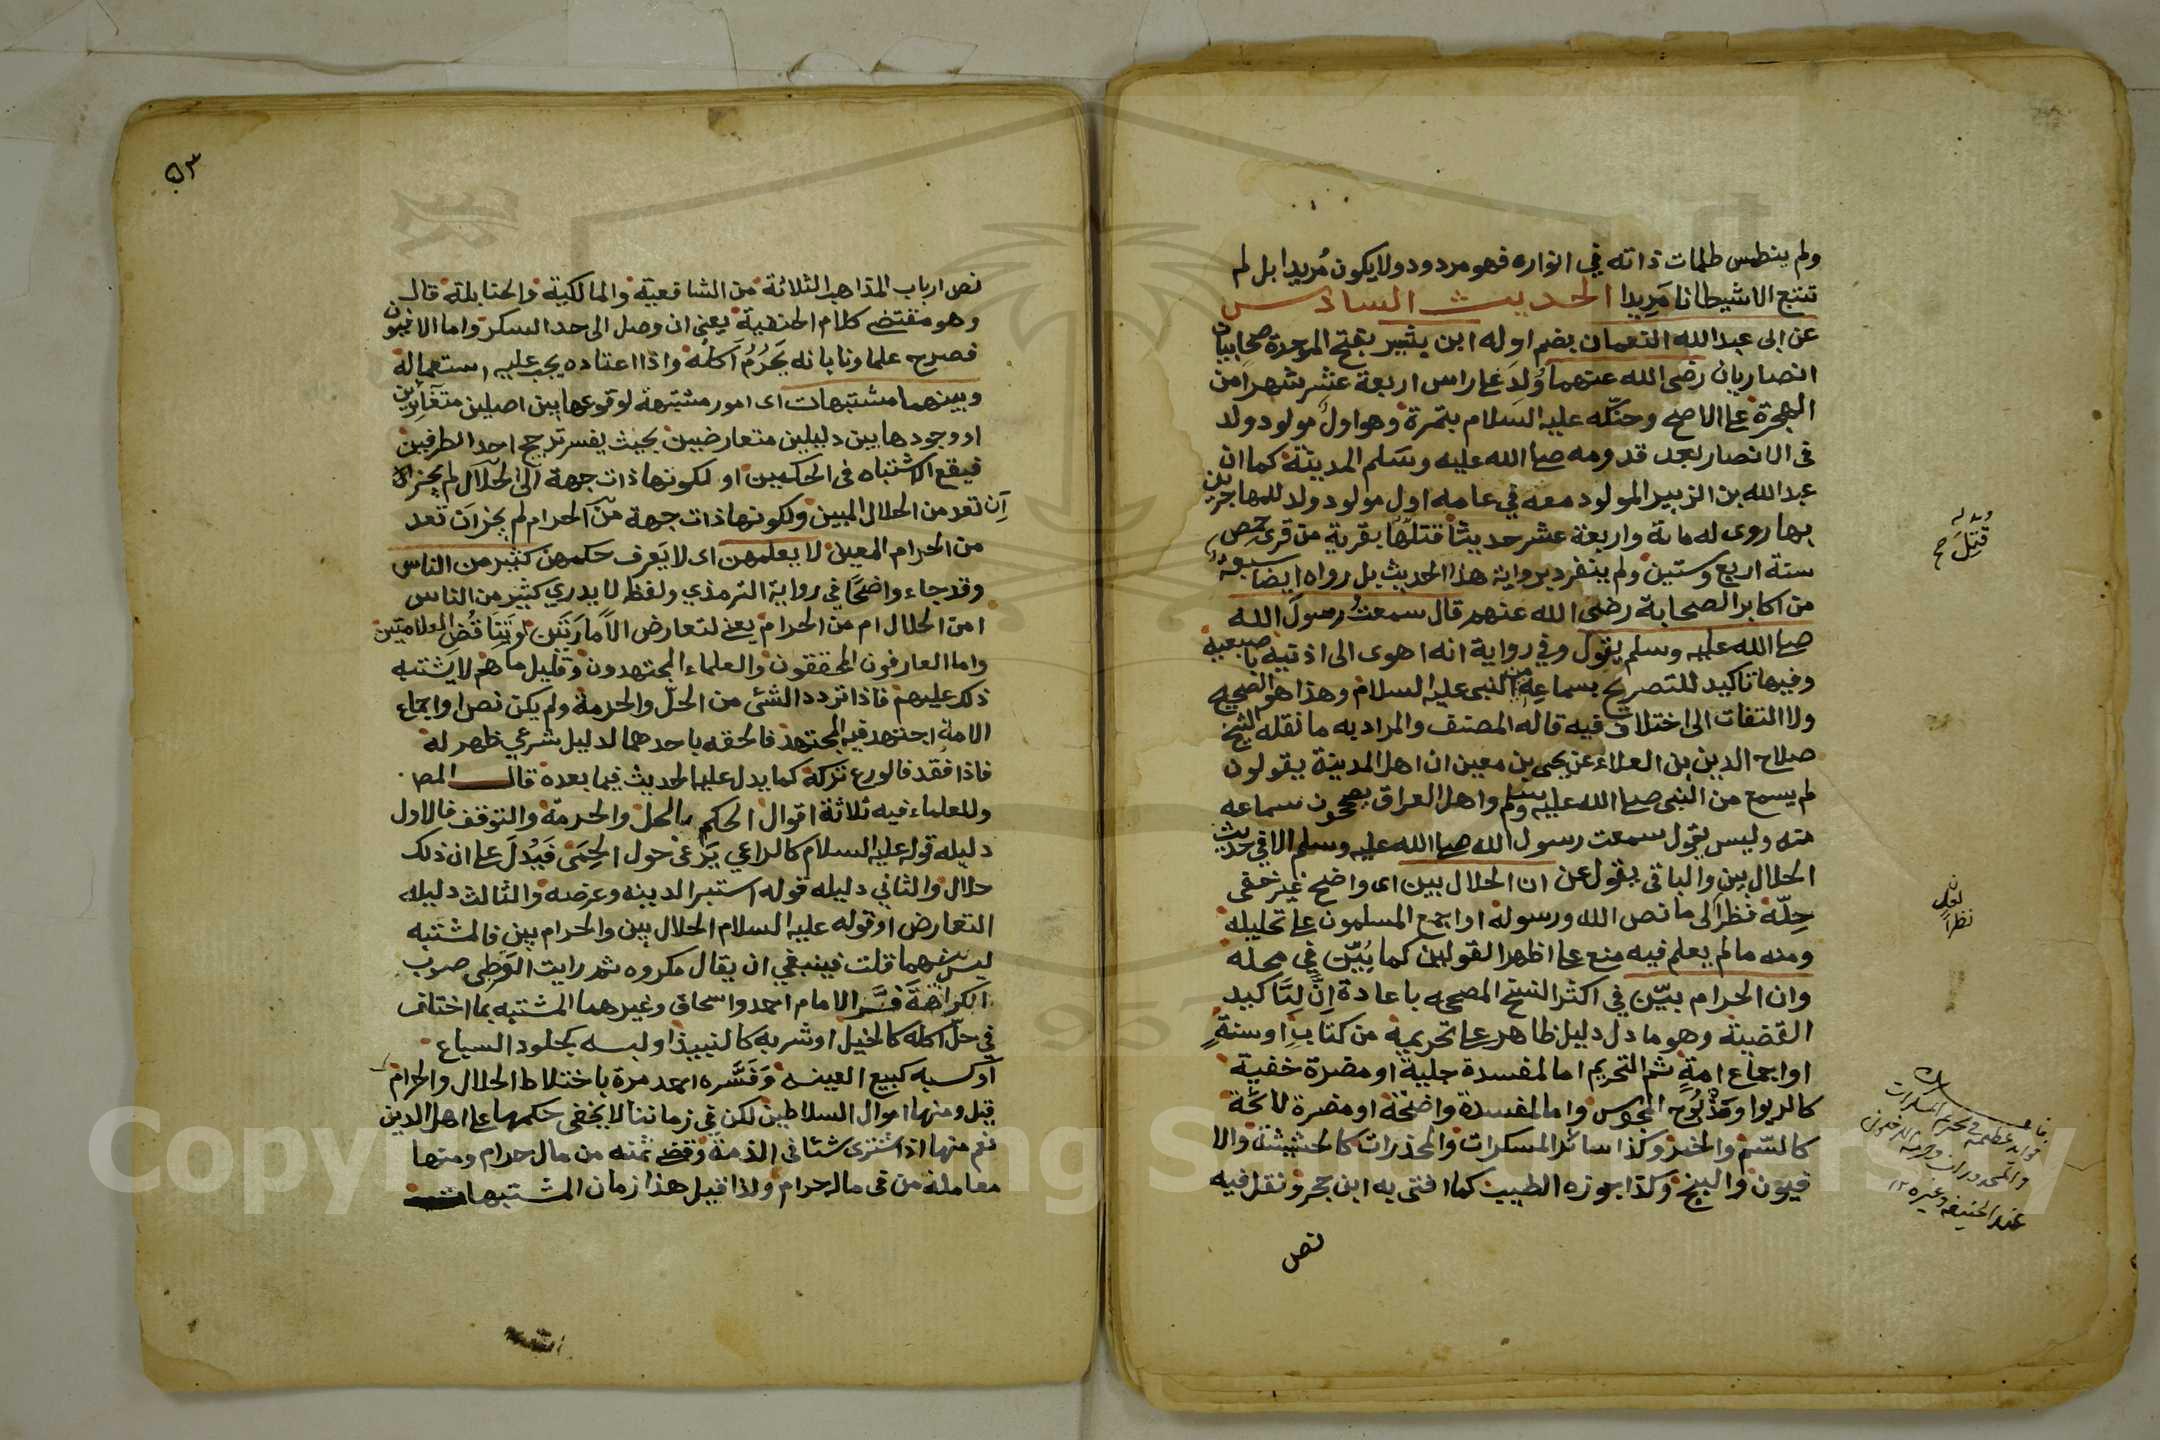 ولم ينطمس ظلمات ذاته في انواره فهو مردود ولا يكون مُريدا بل لم
تنتج الا شيطانا مَرِيدا الحديث السادس
عن ابى عبدالله النعمان بضم اوله ابن بشير بفتح الموحدة صحابيان
انصاريان رضى الله عنهما وُلِدَ على راس اربعة عشر شهرا من
الهجرة على الاصح وحنّكه عليه السلام بتمرة وهو اول مولود ولد
فى الانصار بعد قدومه صلى الله عليه وسلم المدينة كما ان
عبدالله بن الزبير المولود معه في عامه اول مولود ولد للمهاجرين
بها روى له ماية واربعة عشر حديثا قتل بقرية من قرى حمص
سنة اربع وستين ولم ينفرد برواية هذا الحديث بل رواه ايضا سبعة
من اكابر الصحابة رضى الله عنهم قال سمعت رسول الله
صلى الله عليه وسلم يقول وفي رواية انه اهوى الى اذنيه باصبعيه
وفيها تاكيد للتصريح بسماعه من النبى عليه السلام وهذا هو الصحيح
ولا التفات الى اختلاف فيه قاله المصنف والمراد به ما نقله الشيخ
صلاح الدين بن العلاء عن يحيى بن معين ان اهل المدينة يقولون
لم يسمع من النبى صلى الله عليه وسلم واهل العراق يصححون سماعه
منه وليس يقول سمعت رسول الله صلى الله عليه وسلم الا فى حديث
الحلال بين والباقى يقول عن ان الحلال بين اى واضح غير خفى
حِلّه نظرا لى ما نص الله ورسوله او اجمع المسلمون على تحليله
ومنه ما لم يعلم فيه منع على اظهر القولين كما بُيّن في محله
وان الحرام بيّن في اكثر النسخ المصححه باعادة اِنّ لِتاكيد
القضية وهو ما دل دليل ظاهر على تحريمه من كتابٍ او سنةٍ
او اجماع امةٍ ثم التحريم اما لمفسدة جلية او مضرة خفية
كالربوا ومذبوح المجوس واما لمفسدة واضحة او مضرة لائحة
كالسّم والخمر وكذا سائر المسكرات والمخدرات كالحشيشة والا
فيون والبنج وكذا جوزه الطيب كما افتى به ابن حجر ونقل فيه
نص
قُتِلَ صح
لعله
نظرا
٥٣
نص ارباب المذاهب الثلاثة من الشافعية والمالكية والحنابلة قال
وهو مقتضى كلام الحنفية يعنى ان وصل الى حد السكر واما الافيون
فصرح علماونا بانه يَحرُمُ اَكلُه واذا اعتاده يجب عليه استعماله
وبينهما مشتبهات اى امور مشتبهة لوقوعها بين اصلين متغايرين
او وجودها بين دليلين متعارضين بحيث يفسر ترجيح احد الطرفين
فيقع الاشتباه فى الحكمين او لكونها ذات جهة الى الحلال لم يجز
ان تعد من الحلال المبين ولكونها ذات جهة من الحرام لم يجز ان تعد
من الحرام المعين لا يعلمهن اى لا يعرف حكمهن كثير من الناس
وقد جاء واضحًا في رواية الترمذي ولفظه لا يدري كثير من الناس
امن الحلال ام من الحرام يعنى لتعارض الاَمارَتَين وتناقُضِ العلامتين
واما العارفون المحققون والعلماء المجتهدون وقليل ما هم لا يشتبه
ذلك عليهم فاذا تردد الشئ من الحلّ والحرمة ولم يكن نص او اجماع
الامة اجتهد فيه المجتهد فالحقه باحدهما لدليل شرعي ظهر له
فاذا فقد فالورع تركه كما يدل عليه الحديث فيما بعده قال المص
وللعلماء فيه ثلاثة اقوال الحكم بالحل والحرمة والتوقف فالاول
دليله قوله عليه السلام كالراعي يَرْعىٰ حول الحِمَى فيَدُلّ على ان ذلك
حلال والثاني دليله قوله استبرا لدينه وعرضه والثالث دليله
التعارض او قوله عليه السلام الحلال بين والحرام بين فالمشتبه
ليس منهما قلت فينبغي ان يقال مكروه ثم رايت القرطبى صوب
الكراهة فسَّر الامام احمد واسحاق وغيرهما المشتبه بما اختلف
في حلّ اكله كالخيل او شربه كالنبيذ او لبسه كجلود السباع
او كسبه كبيع العينه وفَسَّره احمد مرة باختلاط الحلال والحرام
قيل ومنها اموال السلاطين لكن فى زماننا لا يخفى حكمها على اهل الدين
نعم منها اذا اشترى شئا فى الذمة وقضى ثمنه من مال حرام ومنها
معاملة من فى ماله حرام ولذا قيل هذا زمان المشتبهات
Copyright © King Saud University